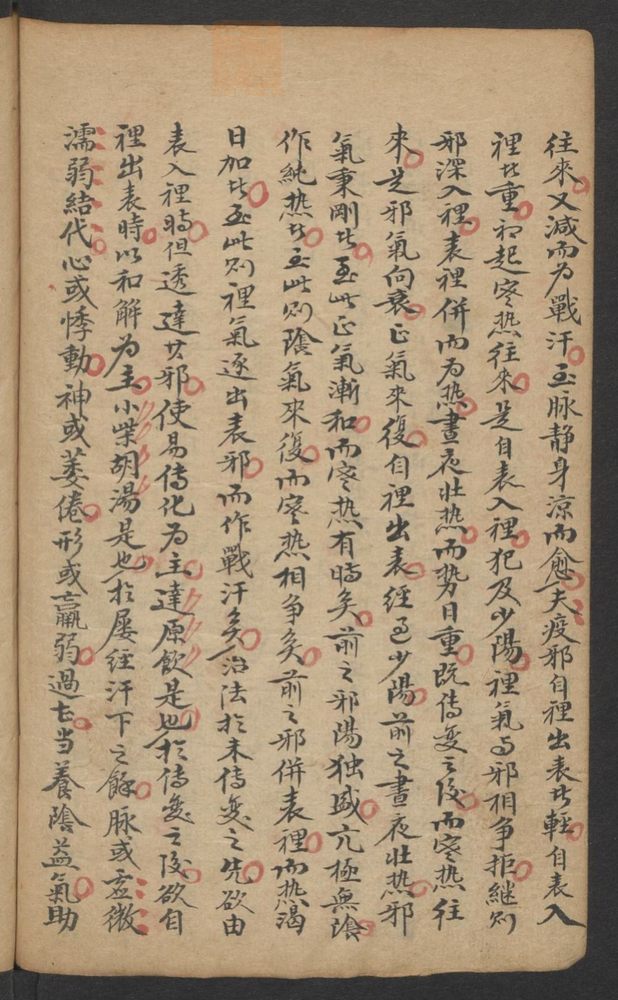 往來又減而为戰汗至脉静身涼而愈夫疫邪自裡出表片輕自表入
裡片重初起寒热往來是自表入裡犯及少陽裡氣与邪相争拒継則
邪深入裡表裡併而为热晝夜壮热而势日重既传变之後而寒热往
來是邪氣向衰正氣來復自裡出表經过少陽前之晝夜壮热邪
氣秉剛片至此正氣漸和而寒热有時矣前之邪陽独盛亢極無陰
作純热片至此則陰氣來復而寒热相争矣前之邪併表裡而热渴
日加片至此則裡氣逐出表邪而作戰汗矣治法於未传変之先欲由
表入裡時但透達其邪使易传化为主達原飲是也於传変之後欲自
裡出表時以和解为主小柴胡湯是也於屡經汗下之餘脉或虚微
濡弱結代心或悸動神或萎倦形或羸弱過七当養陰益氣助